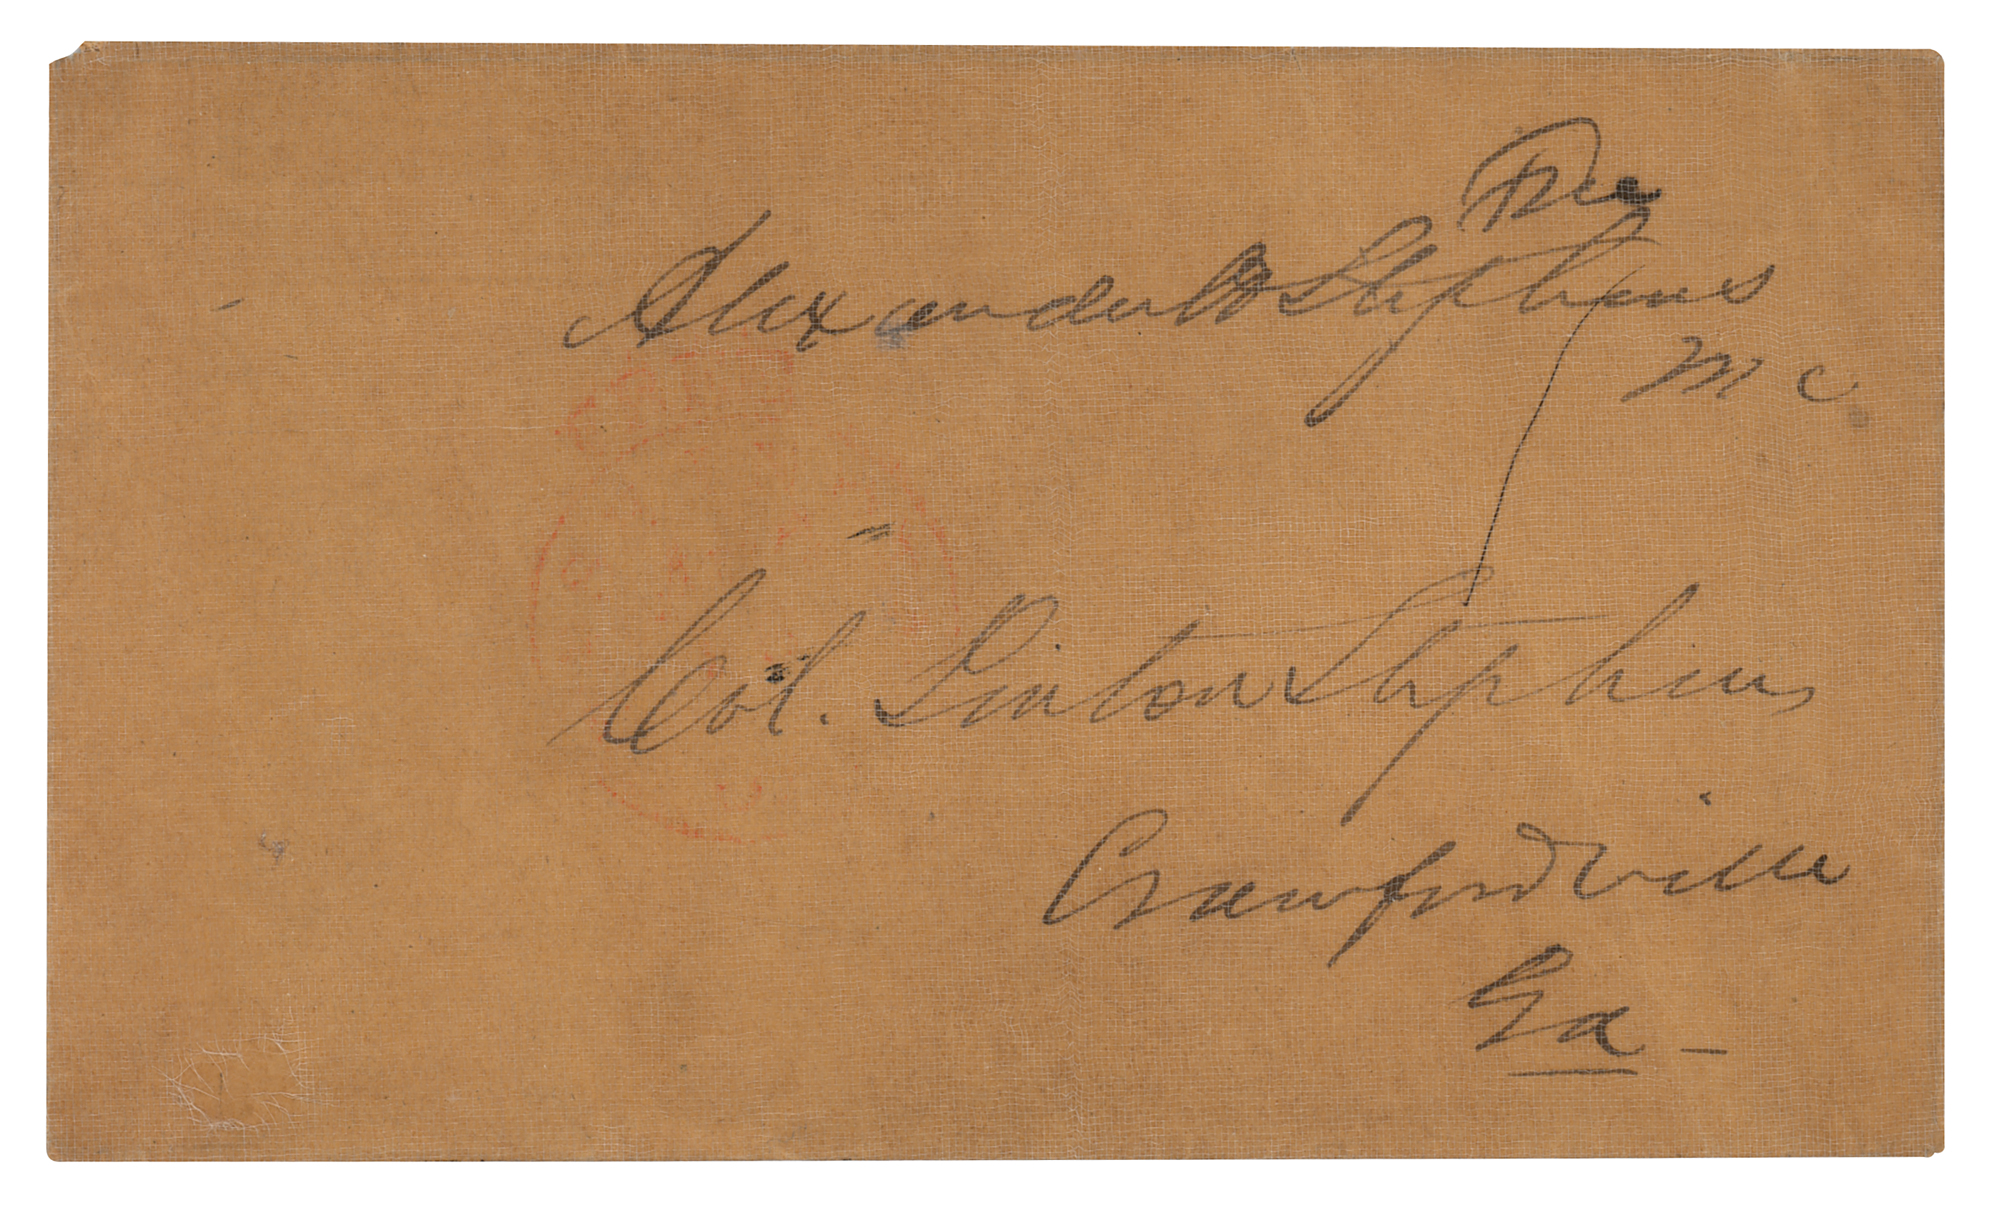 Free
Alexander H Stephens
M C
FREE
Col. Linton Stephens
Crawfordville
Ga -